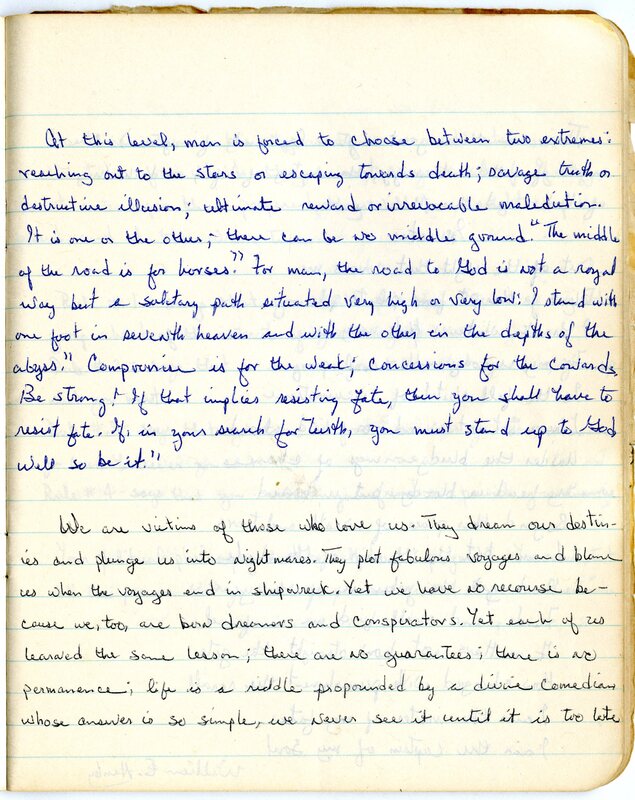 At this level, man is forced to choose between two extremes:
reaching out to the stars or escaping towards death; savage truth or
destructive illusion; ultimate reward or irrevocable malediction.
It is one or the other; there can be no middle ground. "The middle
of the road is for horses." For man, the road to God is not a royal
way but a solitary path situated very high or very low: I stand with
one foot in seventh heaven and with the other in the depths of the
abyss." Compromise is for the weak; concessions for the cowards,
Be strong! If that implies resisting fate, then you shall have to
resist fate. If, in your search for Truth, you must stand up to God
well so be it."
We are victims of those who love us. They dream our destin-
ies and plunge us into nightmares. They plot fabulous voyages and blame
us when the voyages end in shipwreck. Yet we have no recourse be-
cause we, too, are born dreamers and conspirators. Yet each of us
learned the same lesson; there are no guarantees; there is no
permanence; life is a riddle propounded by a divine comedian
whose answer is so simple, we never see it until it is too late
I am the captain of my soul
William E. Henley